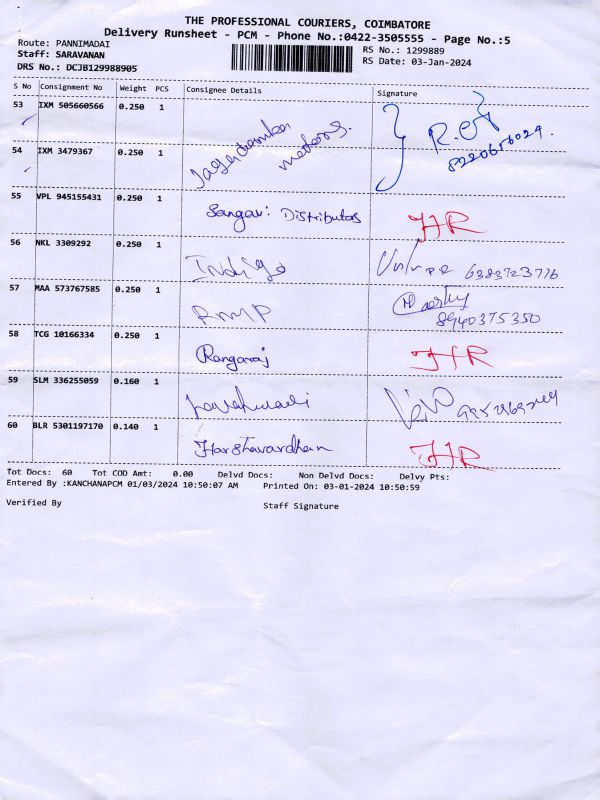 THE PROFESSIONAL COURIERS, COIMBATORE
Delivery Runsheet - PCM - Phone No.:0422-3505555 - Page No.:5
Route: PANNIMADAI
RS No.: 1299889
Staff: SARAVANAN
RS Date: 03-Jan-2024
DRS No.: DCJB129988905
S No Consignment No Weight PCS Consignee Details Signature
53 IXM 505660566 0.250 1
54 IXM 3479367 0.250 1
55 VPL 945155431 0.250 1 Sangavi Distributors HR
56 NKL 3309292 0.250 1 Indigo 6383723776
57 MAA 573767585 0.250 1 RMP 8940375350
58 TCG 10166334 0.250 1 Rangaraj HR
59 SLM 336255059 0.160 1
60 BLR 5301197170 0.140 1 Harshavardhan HR
Tot Docs: 60 Tot COD Amt: 0.00 Delvd Docs: Non Delvd Docs: Delvy Pts:
Entered By :KANCHANAPCM 01/03/2024 10:50:07 AM Printed On: 03-01-2024 10:50:59
Verified By Staff Signature